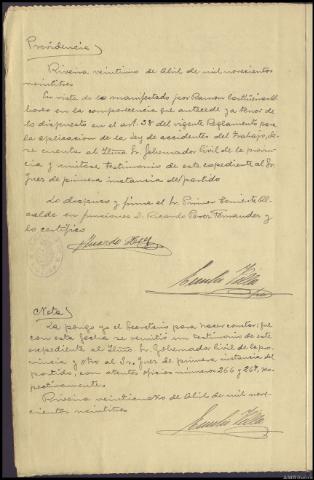 Providencia
Riveira veintiuno de Abril de mil novecientos
veintitres
En vista de lo manifestado por Ramon
en la comparecencia que antecede y a tenor de
lo dispuesto en el art. 38 del vigente Reglamento para
la aplicacion de la ley de accidentes del trabajo, 
cuenta al Iltmo Sr. Gobernador Civil de la provin
cia y remitase testimonio de este expediente al Sr.
Juez de primera instancia del partido
Lo dispuso y firma el Sr. Primer Teniente Al-
calde en funciones D. Ricardo Fernandez y
yo certifico
Ricardo
Nota
La pongo yo el Secretario para hacer constar que
con esta fecha se remitió un testimonio de este
expediente al Iltmo. Sr. Gobernador Civil de la pro-
vincia y otro al Sr. Juez de primera instancia del
partido, con atentos oficios numeros 266 y 267, res-
pectivamente.
Riveira de Abril de mil nove-
cientos veintitres